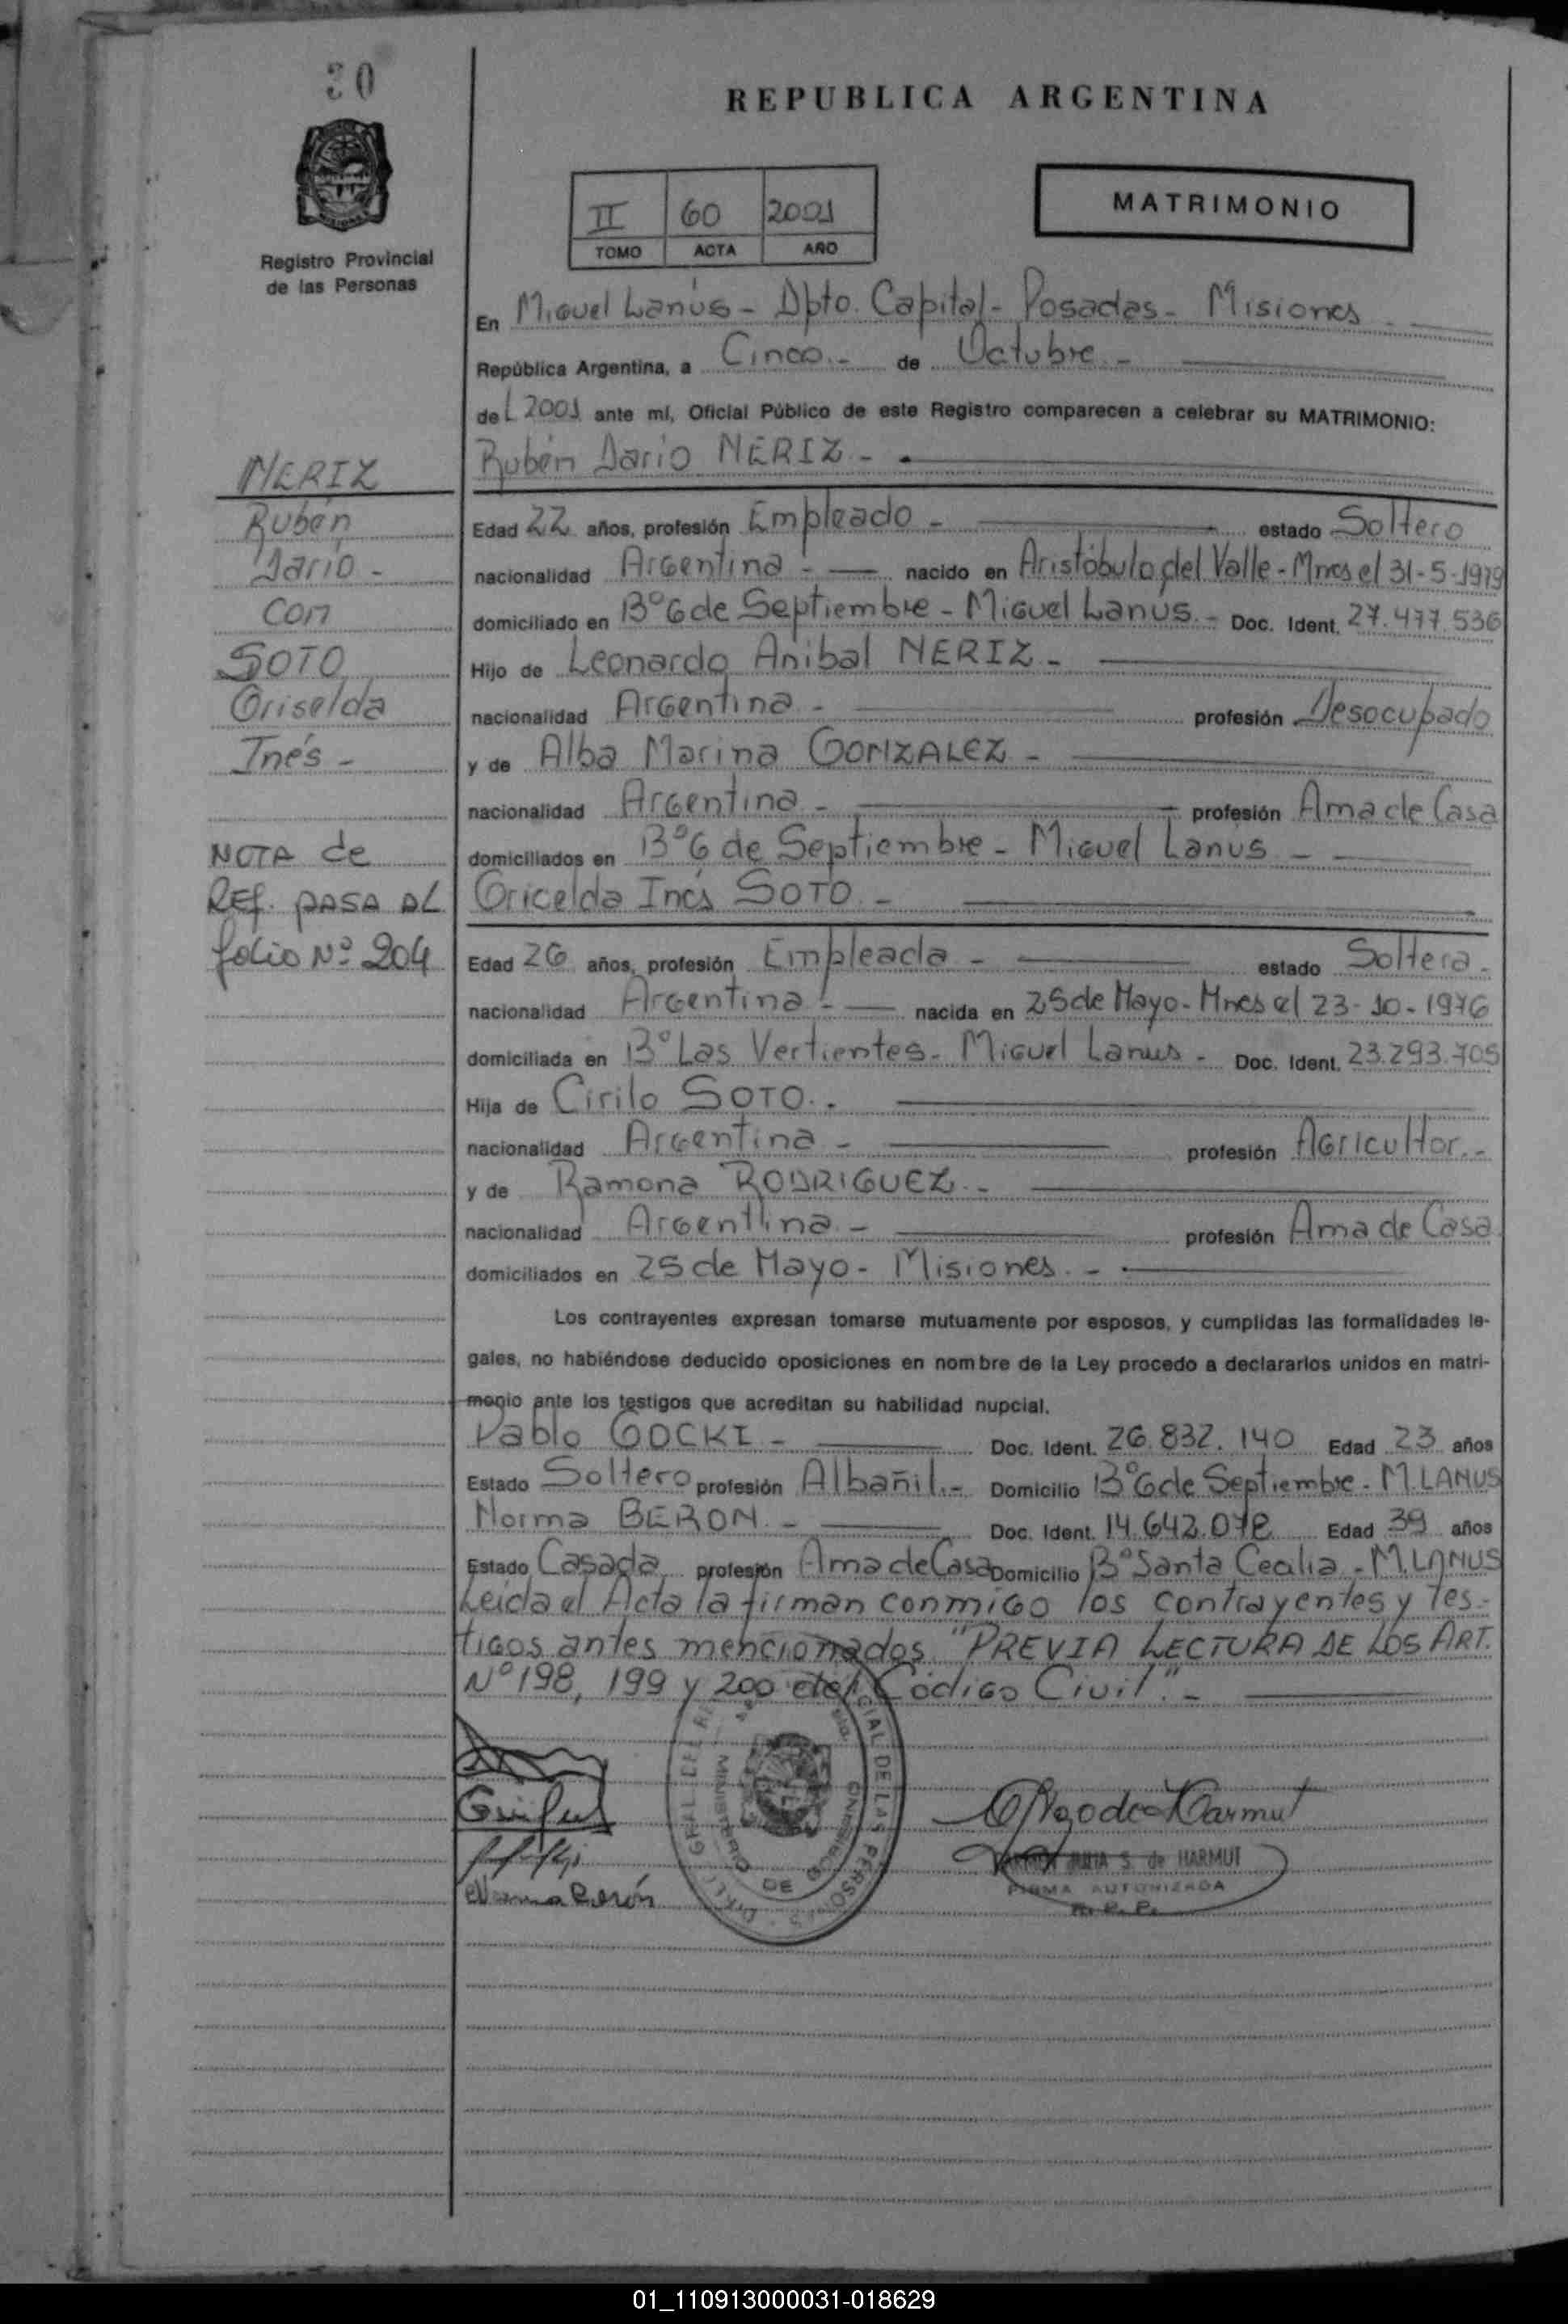 30
REPUBLICA ARGENTINA
II 60 2001
TOMO ACTA AÑO
MATRIMONIO
Registro Provincial
de las Personas
En Miguel Lanús - Dpto. Capital - Posadas - Misiones
República Argentina, a Cinco.- de Octubre -
del 2001 ante mí, Oficial Público de este Registro comparecen a celebrar su MATRIMONIO:
Rubén Dario NERIZ -
NERIZ
Rubén
Darío -
con
SOTO
Griselda
Inés -
NOTA de
REf. PASA AL
folio Nº 204
Edad 22 años, profesión Empleado - estado Soltero
nacionalidad Argentina - nacido en Aristóbulo del Valle - Mnes el 31-5-1979
domiciliado en Bº 6 de Septiembre - Miguel Lanus. - Doc. Ident. 27.477.536
Hijo de Leonardo Anibal NERIZ -
nacionalidad Argentina - profesión Desocupado
y de Alba Marina GONZALEZ -
nacionalidad Argentina - profesión Ama de Casa
domiciliados en Bº 6 de Septiembre - Miguel Lanus -
Gricelda Inés SOTO -
Edad 26 años, profesión Empleada - estado Soltera -
nacionalidad Argentina - nacida en 25 de Mayo - Mnes el 23-10-1976
domiciliada en Bº Las Vertientes - Miguel Lanus - Doc. Ident. 23.293.705
Hija de Cirilo SOTO.
nacionalidad Argentina - profesión Agricultor.-
y de Ramona RODRIGUEZ.-
nacionalidad Argentina - profesión Ama de Casa
domiciliados en 25 de Mayo - Misiones. -
Los contrayentes expresan tomarse mutuamente por esposos, y cumplidas las formalidades le-
gales, no habiéndose deducido oposiciones en nombre de la Ley procedo a declararlos unidos en matri-
monio ante los testigos que acreditan su habilidad nupcial.
Pablo GOCKI - Doc. Ident. 26.832.140 Edad 23 años
Estado Soltero profesión Albañil.- Domicilio Bº 6 de Septiembre - M. LANUS
Norma BERON - Doc. Ident. 14.642.078 Edad 39 años
Estado Casada profesión Ama de Casa Domicilio Bº Santa Cecilia - M. LANUS
Leída el Acta la firman conmigo los contrayentes y tes-
tigos antes mencionados "PREVIA LECTURA DE LOS ART.
Nº 198, 199 y 200 del Código Civil". -
GRAL. DEL RE CIAL DE LAS PERSONAS
MINISTERIO DE GOBIERNO
Norma Berón
S. de HARMUT
FIRMA AUTORIZADA
R. P. P.
01_110913000031-018629